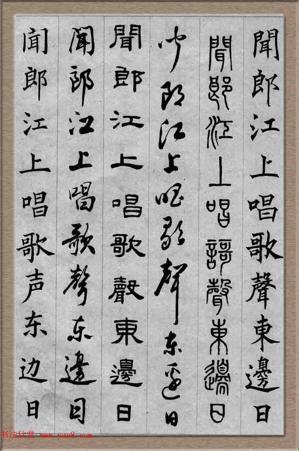 聞郎江上唱歌聲東邊日
聞郎江上唱謌聲東邊日
闻郎江上唱歌声东边日
聞郎江上唱歌聲東邊日
聞郎江上唱歌聲东邊日
闻郎江上唱歌声东边日